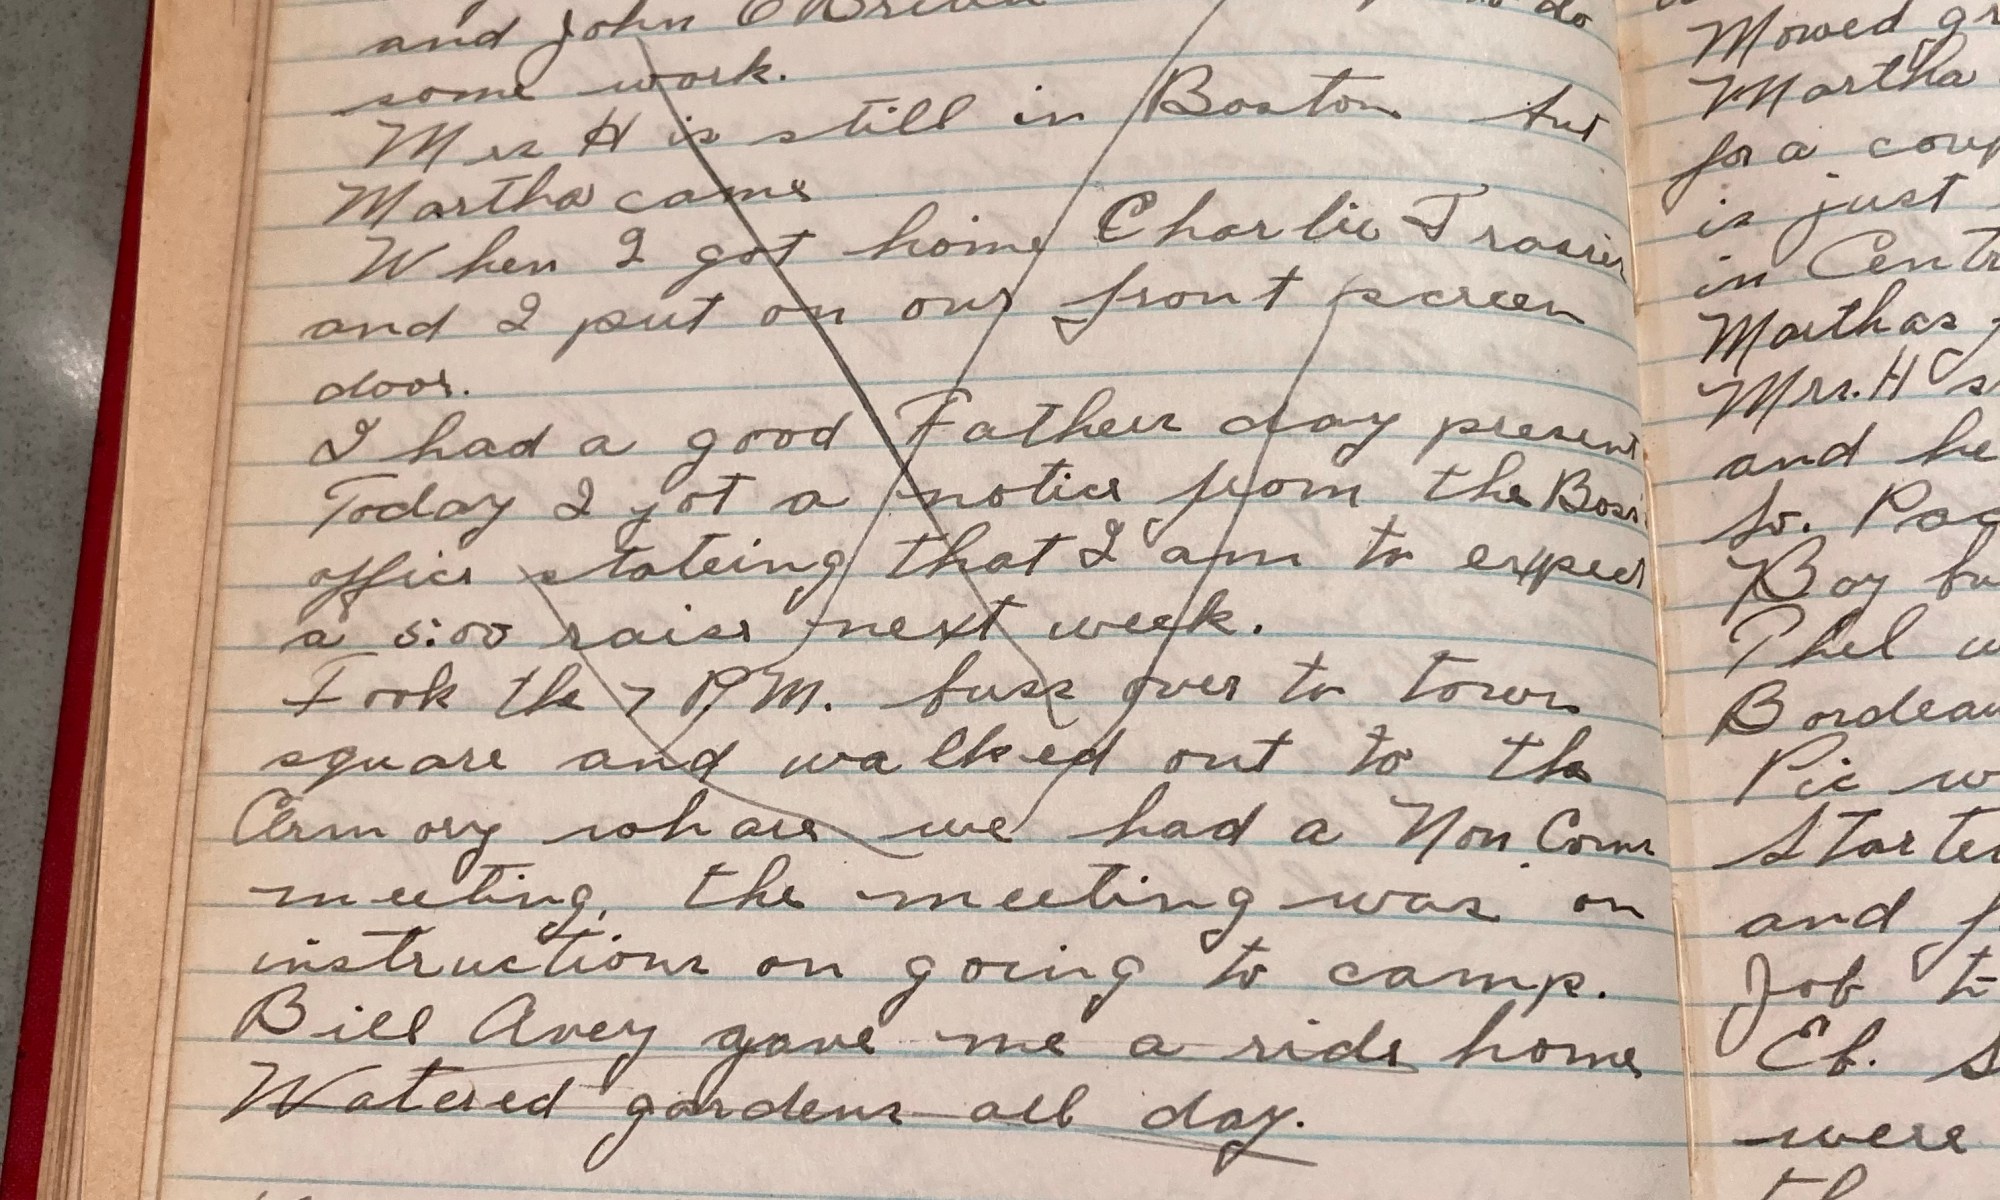 and John O'Brien to do
some work.
Mrs H is still in Boston but
Martha came
When I got home Charlie Frasier
and I put on our front screen
door.
I had a good Fathers day present
Today I got a notice from the Boss
office stateing that I am to expect
a 5:00 raise next week.
Took the 7 P.M. buss over to town
square and walked out to the
Armory whare we had a Non Com
meeting, the meeting was on
instructions on going to camp.
Bill Avey gave me a ride home
Watered gardens all day.
Mowed
Martha
for a
is just
in
Marthas
Mrs. H
and he
So.
Boy
Phel
Pic
and
Job to
Ef.
were